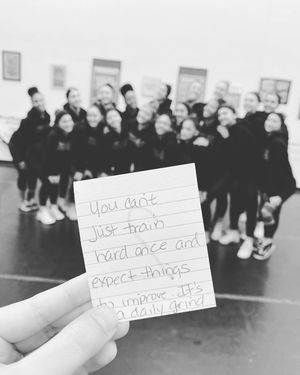 You can't
just train
hard once and
expect things
to improve. It's
a daily grind